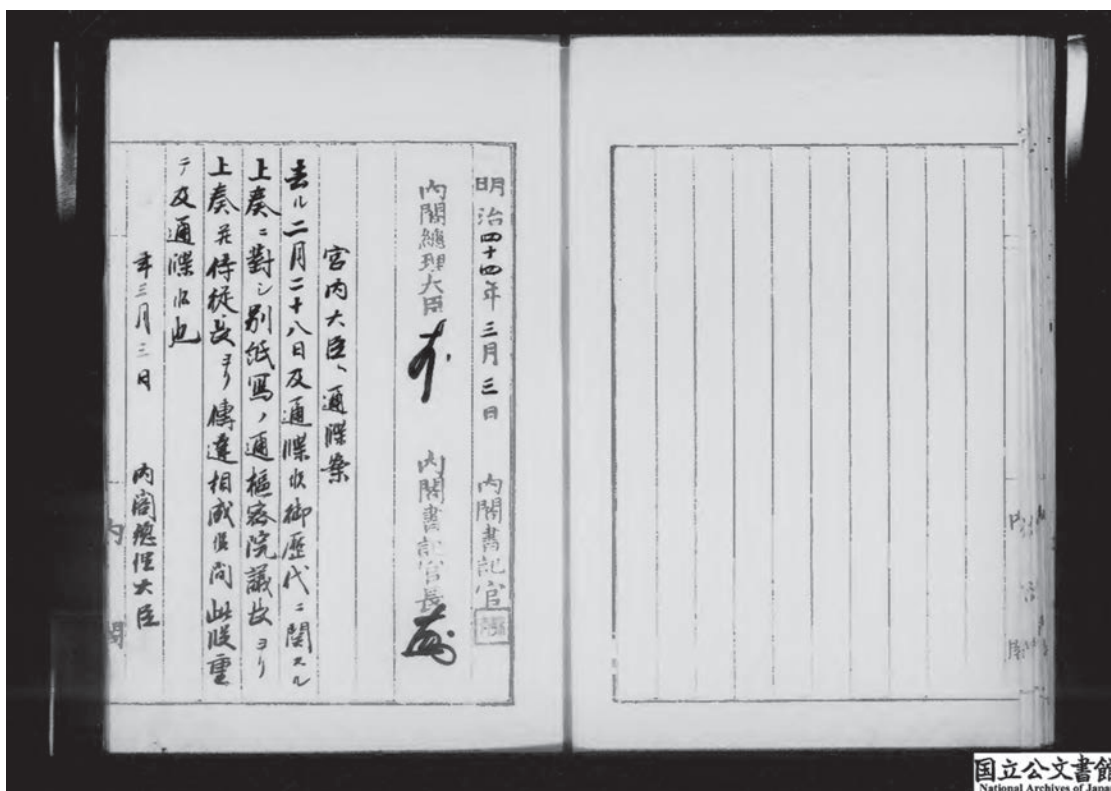 明治四十四年三月三日 内閣書記官
内閣總理大臣 内閣書記官長
宮内大臣ヘ通牒案
去ル二月二十八日及通牒候御歴代ニ関スル
上奏ニ對シ別紙寫ノ通樞密院議長ヨリ
上奏并侍従長ヨリ傳達相成候間此段重
テ及通牒候也
年三月三日 内閣總理大臣
内閣
国立公文書館
National Archives of Japan